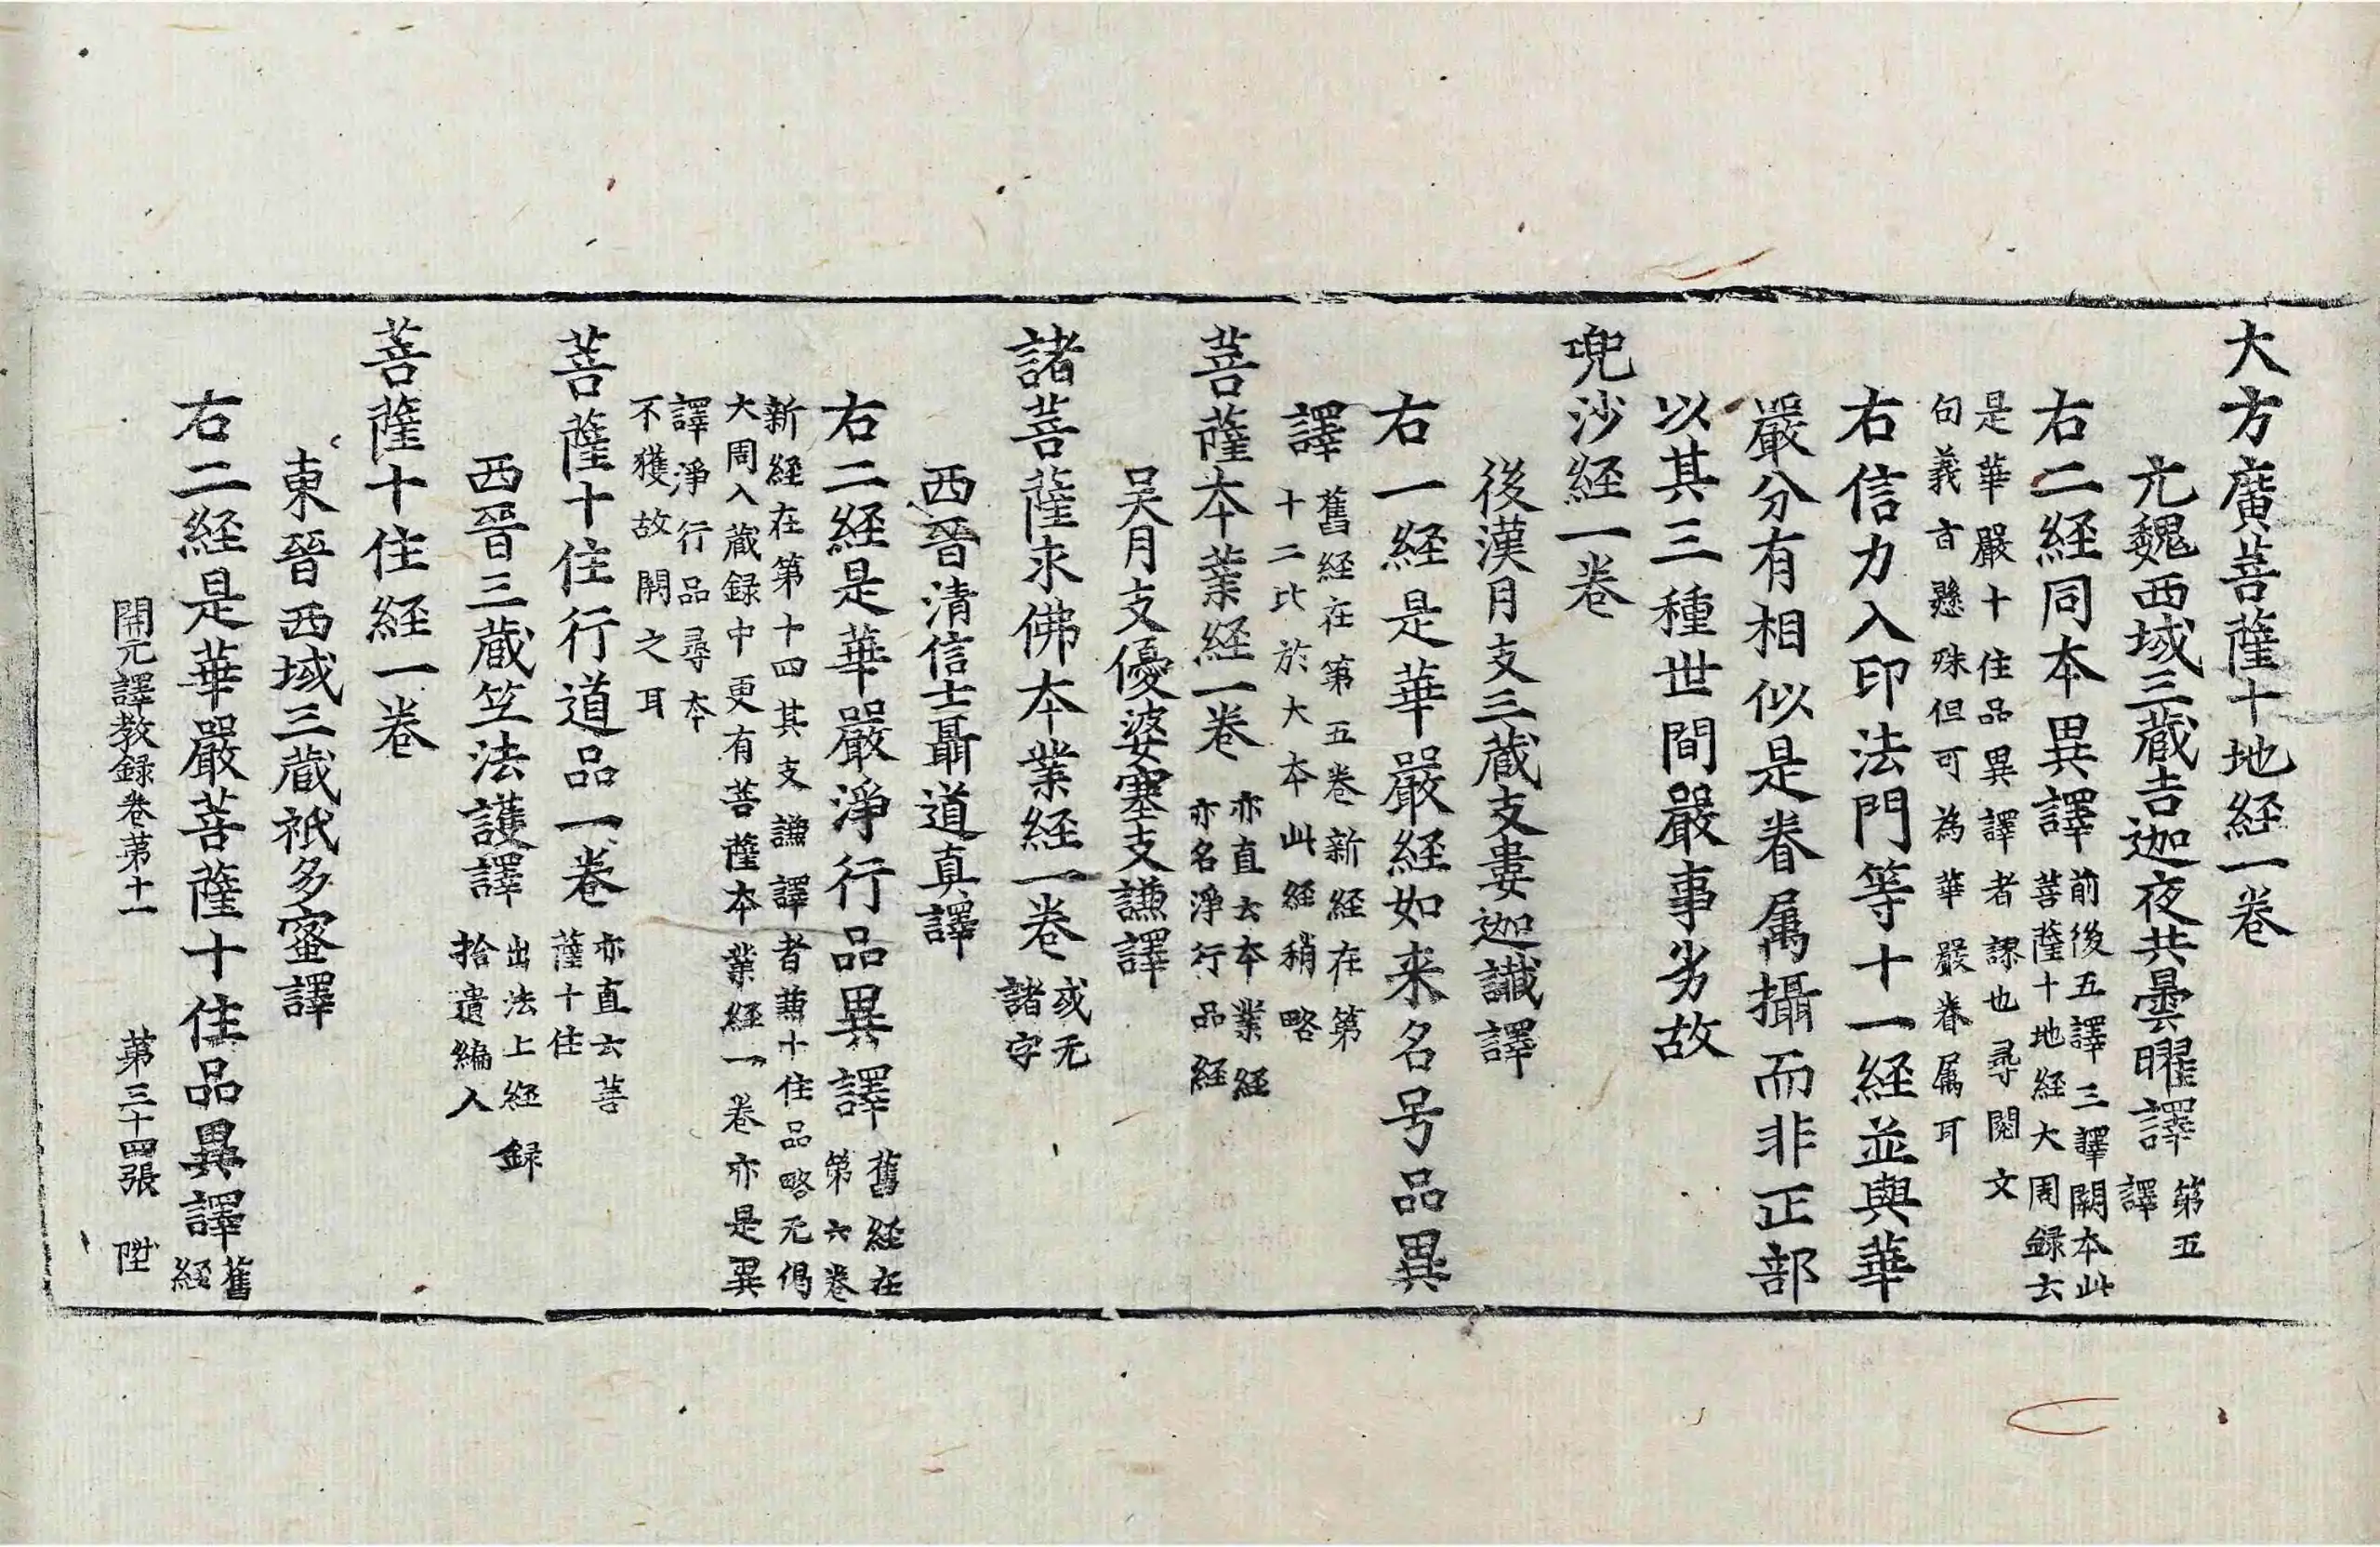 大方廣菩薩十地経一巻
元魏西域三蔵吉迦夜共曇曜譯第五
譯
右二経同本異譯前後五譯三譯闕本此
菩薩十地経大周録云
是華嚴十住品異譯者謬也尋閲文
句義言懸殊但可為華嚴眷属耳
右信力入印法門等十一経並與華
嚴分有相似是眷属攝而非正部
以其三種世間嚴事劣故
兜沙経一巻
後漢月支三蔵支婁迦讖譯
右一経是華嚴経如来名号品異
譯舊経在第五巻新経在第
十二比於大本此経稍略
菩薩本業経一巻亦直云本業経
亦名淨行品経
吴月支優婆塞支謙譯
諸菩薩求佛本業経一巻或无
諸字
西晉清信士聶道真譯
右二経是華嚴淨行品異譯舊経在
第六巻
新経在第十四其支謙譯者兼十住品略无偈
大周入蔵録中更有菩薩本業経一巻亦是異
譯淨行品尋本
不獲故闕之耳
菩薩十住行道品一巻亦直云菩
薩十住
西晉三蔵竺法護譯出法上経録
拾遺編入
菩薩十住経一巻
東晉西域三蔵祇多蜜譯
右二経是華嚴菩薩十住品異譯舊
経
開元譯教録巻第十一 第三十四張 陞